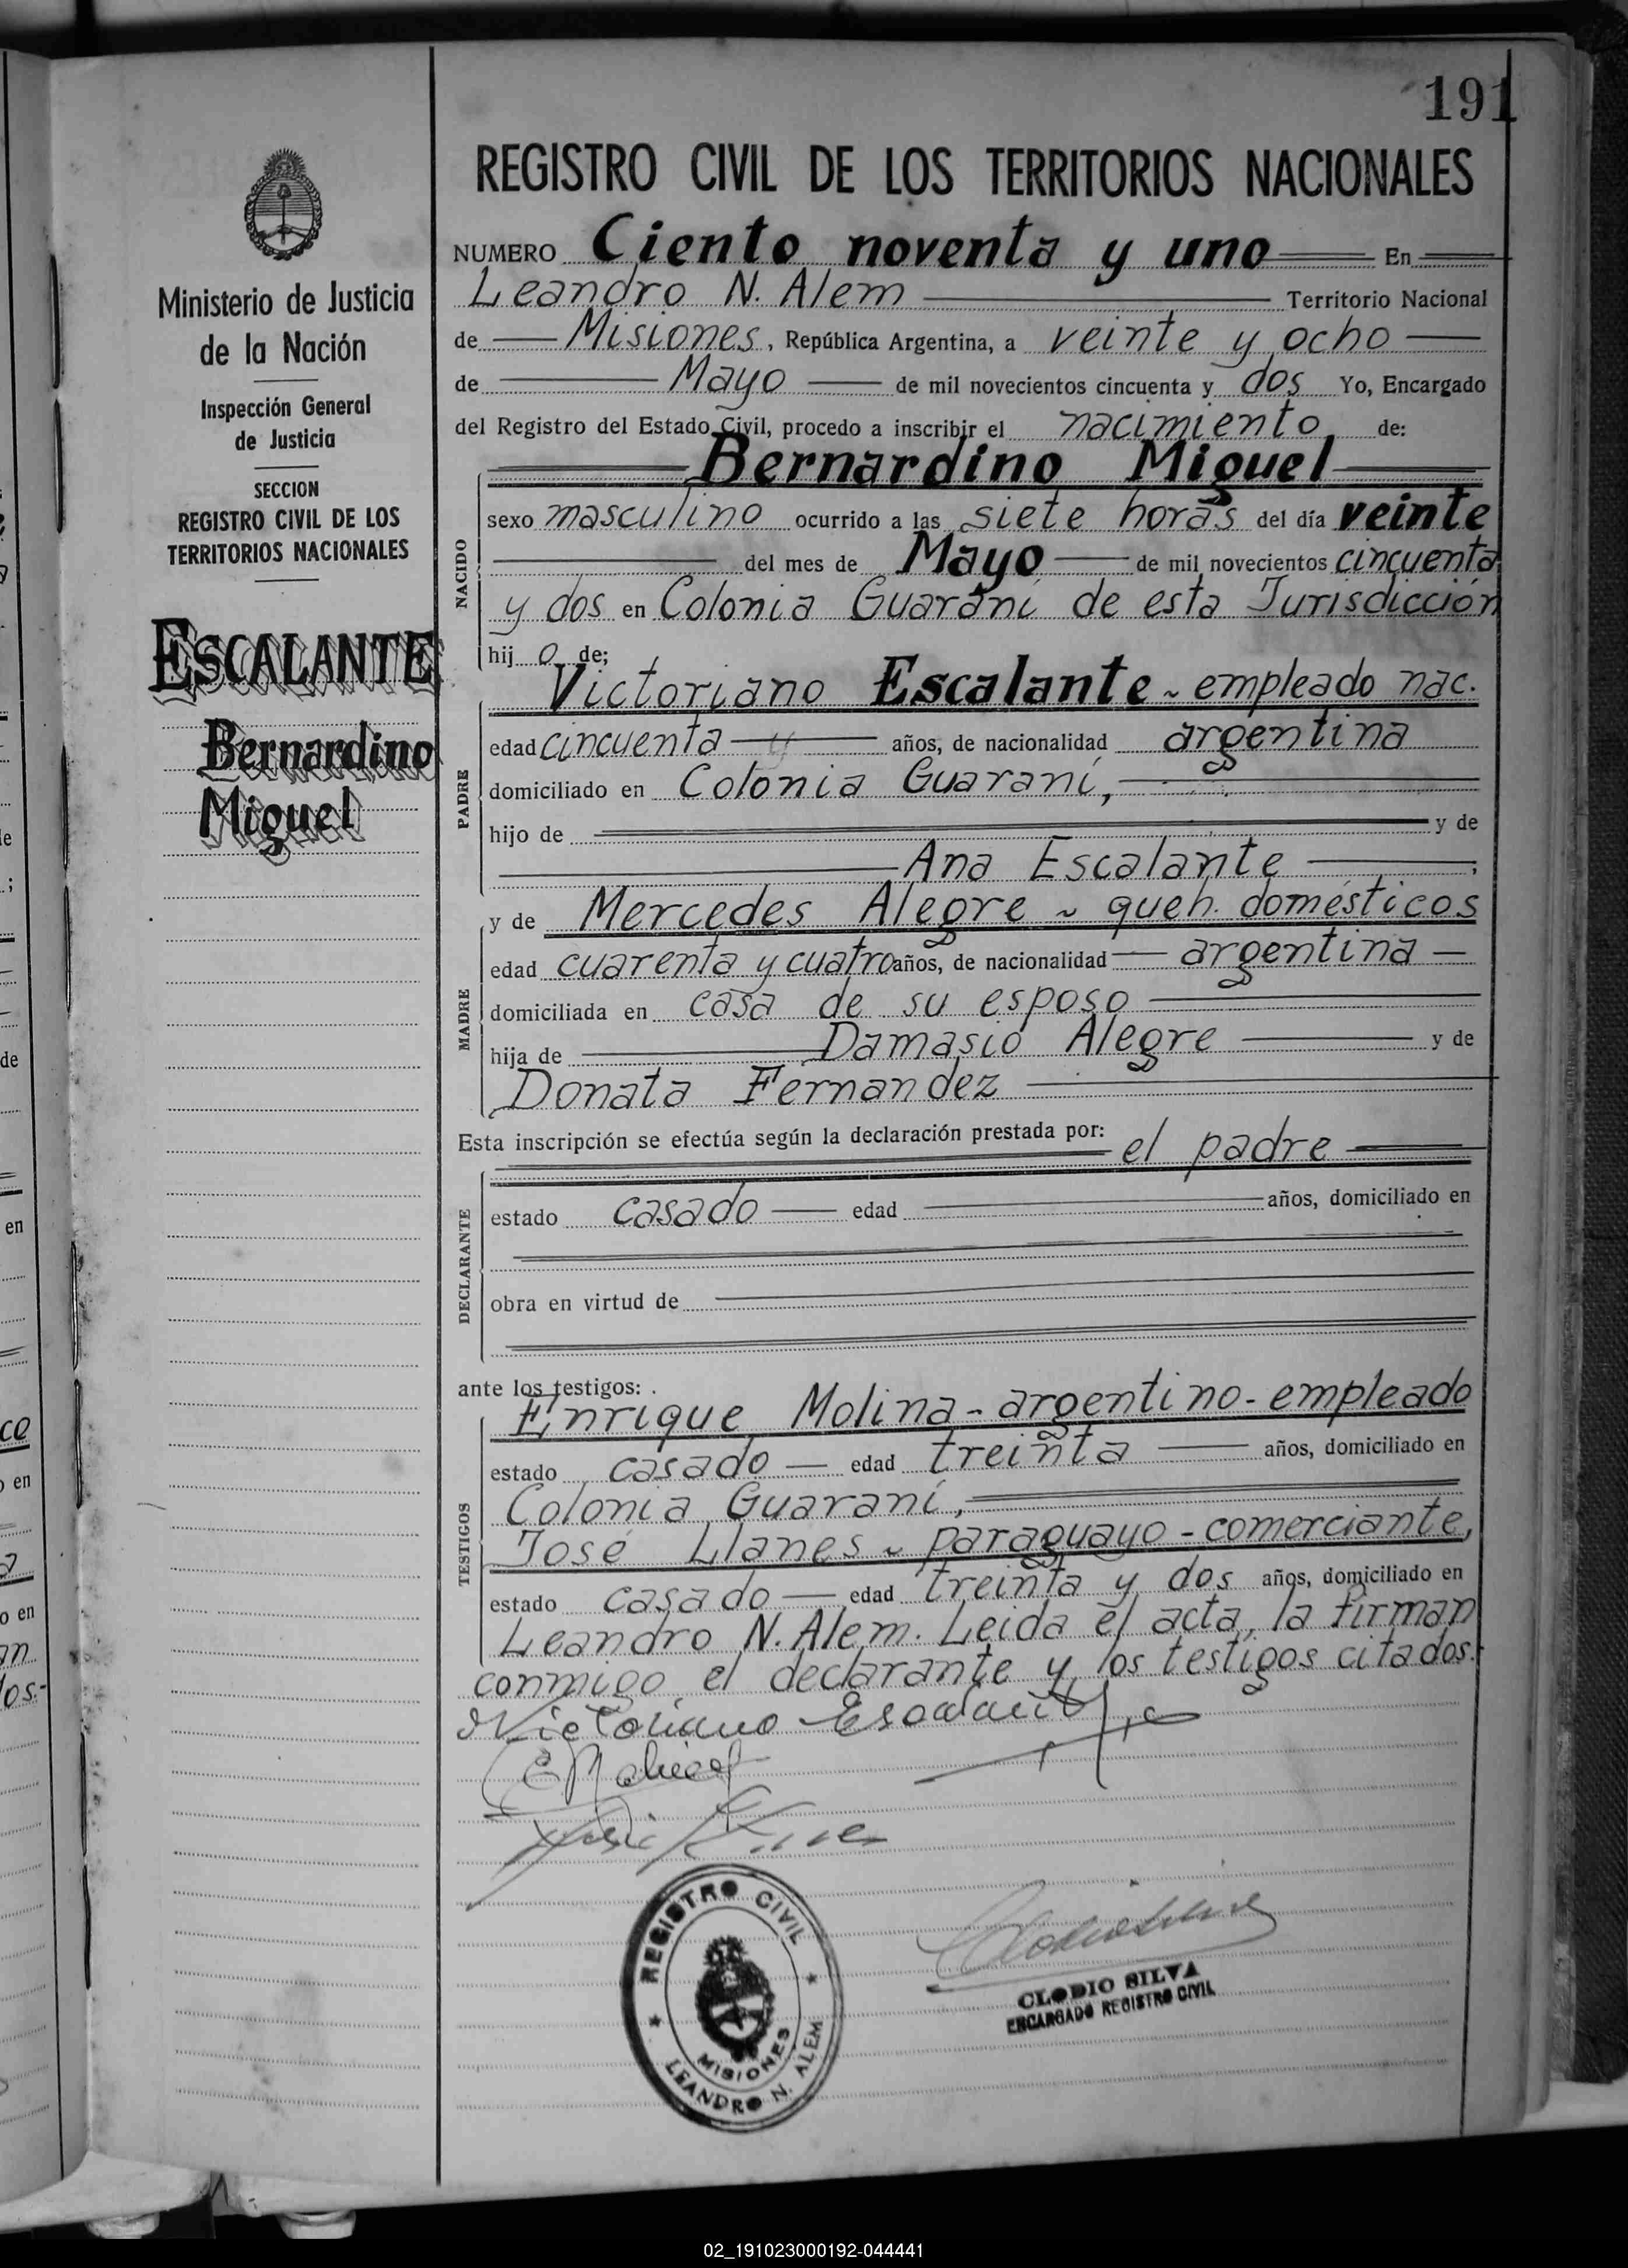 191
REGISTRO CIVIL DE LOS TERRITORIOS NACIONALES
NUMERO Ciento noventa y uno En
Leandro N. Alem Territorio Nacional
de Misiones, República Argentina, a veinte y ocho
de Mayo de mil novecientos cincuenta y dos Yo, Encargado
del Registro del Estado Civil, procedo a inscribir el nacimiento de:
Bernardino Miguel
sexo masculino ocurrido a las siete horas del día veinte
del mes de Mayo de mil novecientos cincuenta
y dos en Colonia Guaraní de esta Jurisdicción
hijo de;
Victoriano Escalante ~ empleado nac.
edad cincuenta años, de nacionalidad argentina
domiciliado en Colonia Guaraní,
hijo de y de
Ana Escalante ;
y de Mercedes Alegre ~ queh. domésticos
edad cuarenta y cuatro años, de nacionalidad argentina
domiciliada en casa de su esposo
hija de Damasio Alegre y de
Donata Fernandez
Esta inscripción se efectúa según la declaración prestada por: el padre
estado casado edad años, domiciliado en
obra en virtud de
ante los testigos:
Enrique Molina - argentino - empleado
estado casado edad treinta años, domiciliado en
Colonia Guaraní,
José Llanes ~ paraguayo - comerciante,
estado casado edad treinta y dos años, domiciliado en
Leandro N. Alem. Leida el acta, la firman
conmigo el declarante y los testigos citados.
Victoriano Escalante
NACIDO
PADRE
MADRE
DECLARANTE
TESTIGOS
REGISTRO CIVIL
MISIONES
LEANDRO N. ALEM
CLODIO SILVA
ENCARGADO REGISTRO CIVIL
Ministerio de Justicia
de la Nación
Inspección General
de Justicia
SECCION
REGISTRO CIVIL DE LOS
TERRITORIOS NACIONALES
ESCALANTE
Bernardino
Miguel
de
en
en
en
02_191023000192-044441